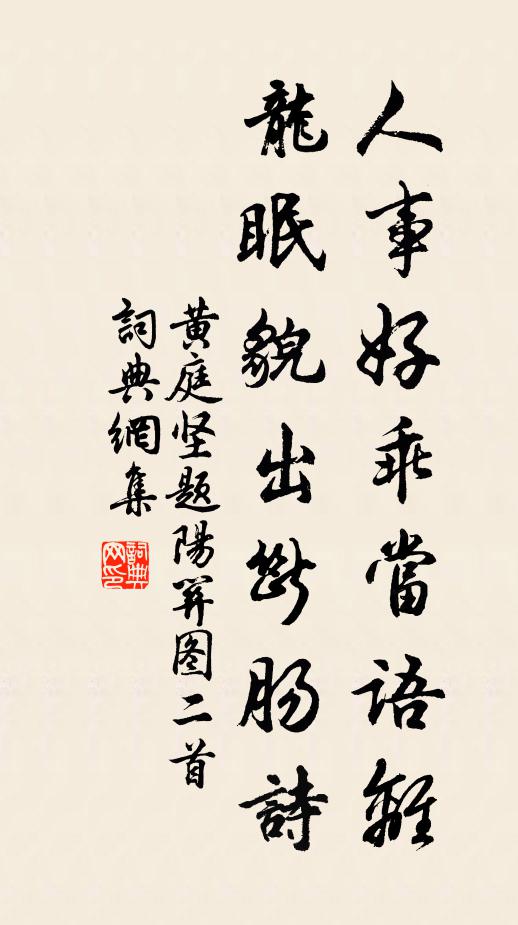 人事好乖當語離
龍眠貌出斷腸詩
黄庭坚题陽關图二首
詞典網集
詞典网印